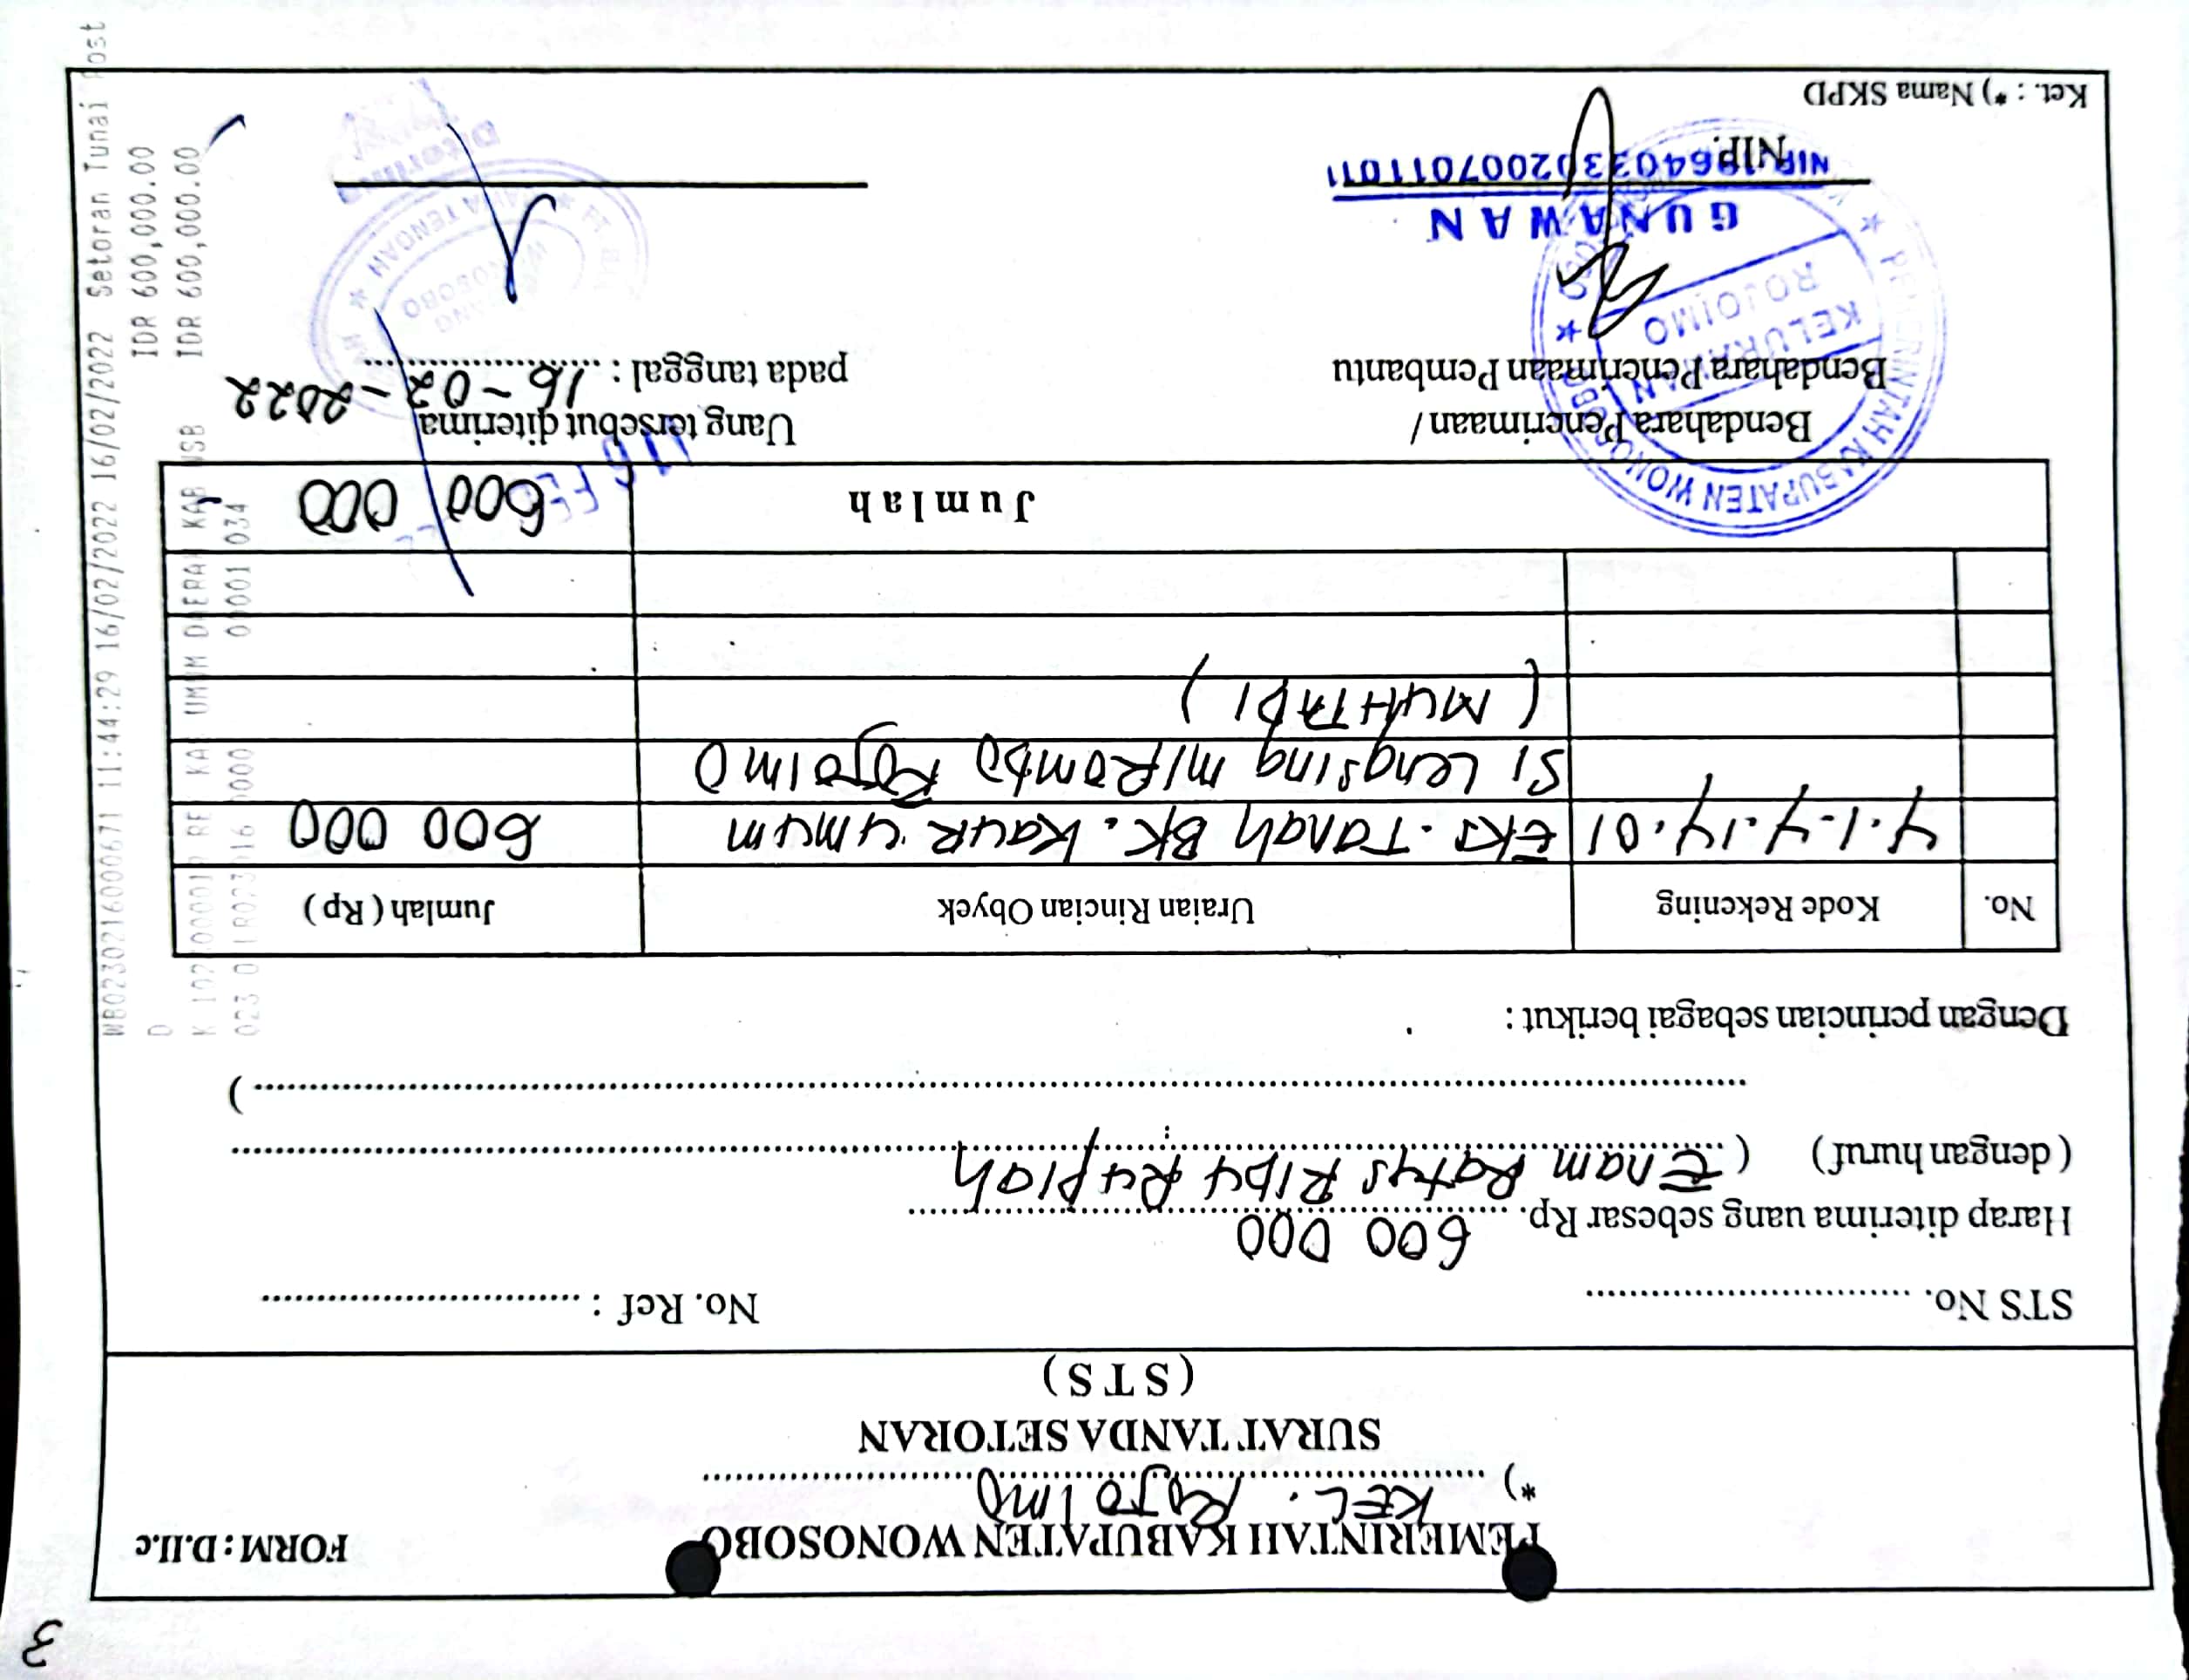 3
PEMERINTAH KABUPATEN WONOSOBO
FORM : D.II.c
*) KEL. ROJOIMO
SURAT TANDA SETORAN
( S T S )
STS No. ................ No. Ref : ................
Harap diterima uang sebesar Rp. 600 000
( dengan huruf ) ( Enam Ratus Ribu Rupiah
................ )
Dengan perincian sebagai berikut :
No. Kode Rekening Uraian Rincian Obyek Jumlah ( Rp )
4.1.4.14.01 EKS. Tanah BK. Kaur umum 600 000
Si Lengsing m/Rombo Rojoimo
( MUHTADI )
J u m l a h 600 000
16 FEB
Bendahara Penerimaan /
Bendahara Penerimaan Pembantu
Uang tersebut diterima
pada tanggal : 16-02-2022
PEMERINTAH KABUPATEN WONOSOBO
KELURAHAN
ROJOIMO
GUNAWAN
NIP.
Diterima
JAWA TENGAH
Ket. : *) Nama SKPD
WB02302160000671 11:44:29 16/02/2022 16/02/2022 Setoran Tunai Post
D IDR 600,000.00
UMUM DAERAH KAB WSB IDR 600,000.00
0001 034